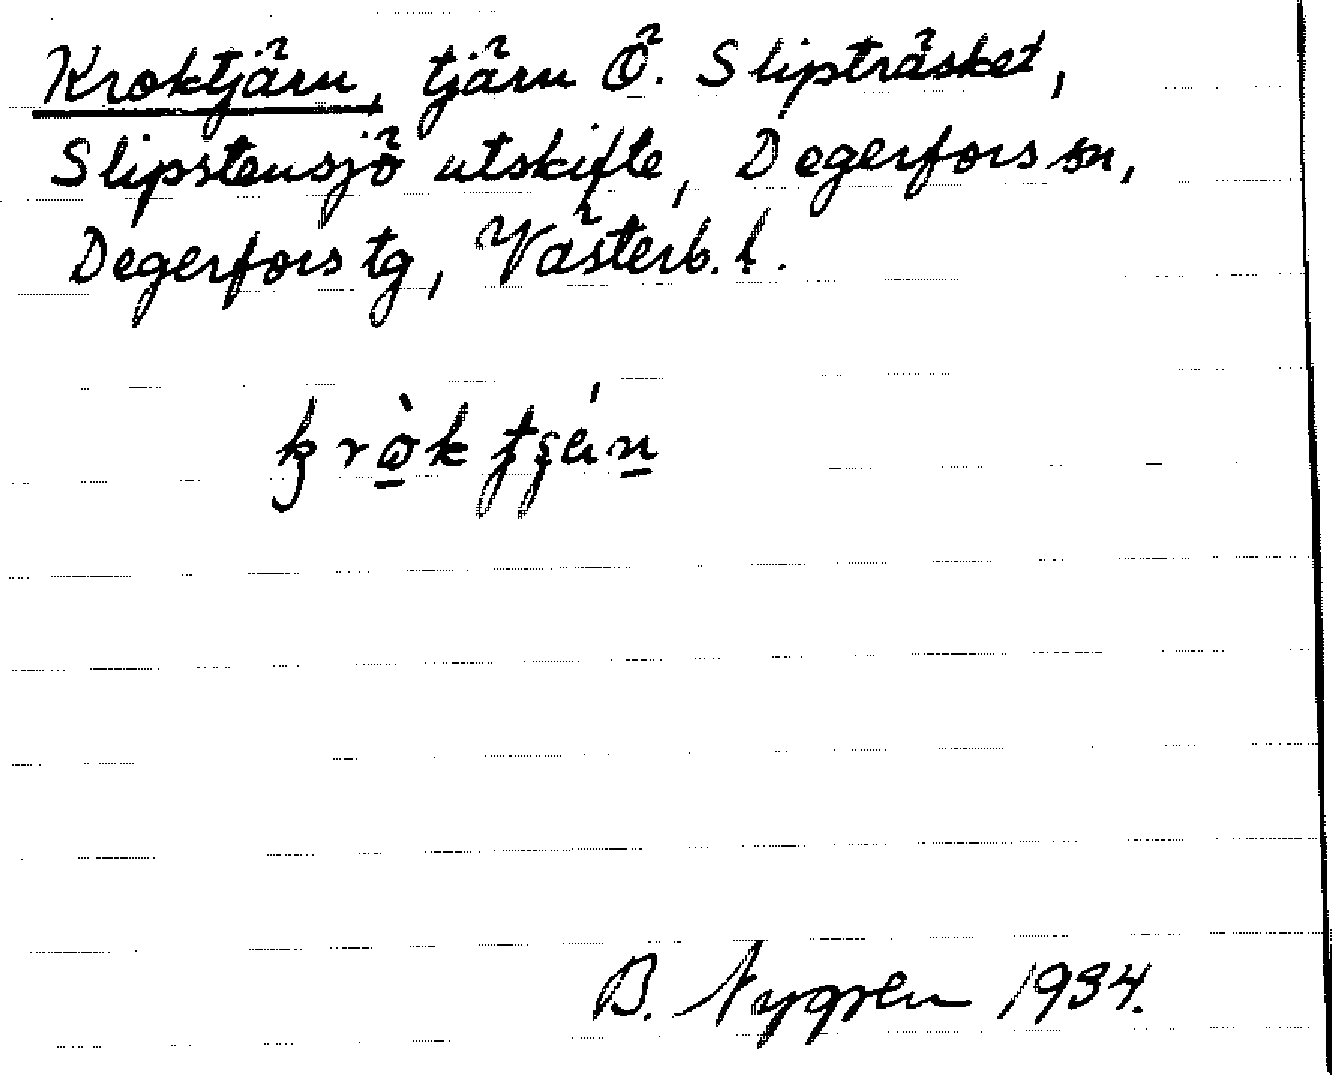 Kroktjärn, tjärn Ö. Slipträsket,
Slipstensjö utskifte, Degerfors sn,
Degerfors tg, Västerb. l.
B. Nygren 1934.